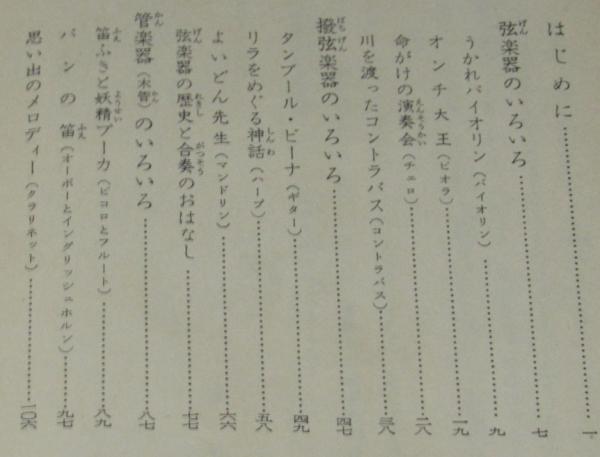 はじめに……………一
弦楽器のいろいろ……………七
うかれバイオリン（バイオリン）……………九
オンチ大王（ビオラ）……………一九
命がけの演奏会（チェロ）……………二八
川を渡ったコントラバス（コントラバス）……………三八
撥弦楽器のいろいろ……………四七
タンブール・ビーナ（ギター）……………四九
リラをめぐる神話（ハープ）……………五八
よいどん先生（マンドリン）……………六六
弦楽器の歴史と合奏のおはなし……………七七
管楽器（木管）のいろいろ……………八七
笛ふきと妖精プーカ（ピコロとフルート）……………八九
パンの笛（オーボーとイングリッシュホルン）……………九七
思い出のメロディー（クラリネット）……………一〇六